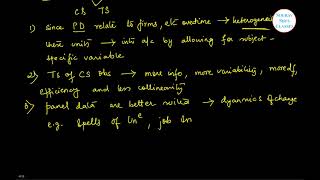 CS TS
1) Since PD relate to firms, etc overtime → heterogene
these units → into a/c by allowing for subject-
specific variable
2) TS of CS obs → more info, more variability, more df,
efficiency and less collinearity
3) panel data are better suited → dynamics of change
e.g. spells of Unᵉ, job tn